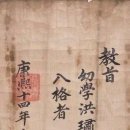 教旨
幼學洪璛
入格者
康熙十四年